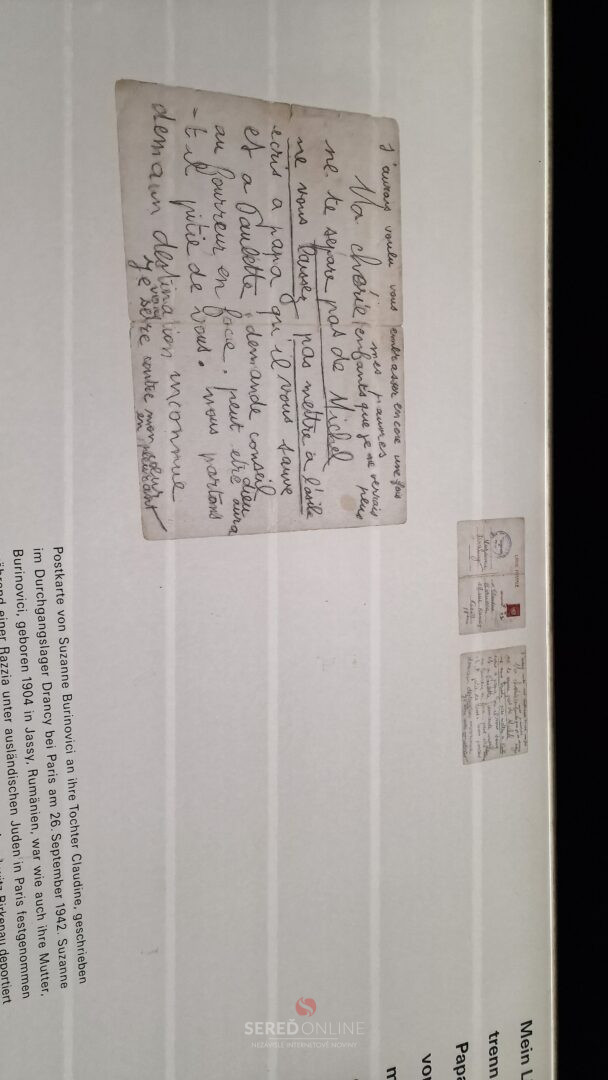 J'aurais voulu vous embrasser encore une fois
mes pauvres
Ma chérie enfants que je ne verrais peus
ne te sépare pas de Michel
ne vous laissez pas mettre à l'asile
ecris a papa qu'il vous sauve
et a Paulette, demande conseil
au fourreur en face, peut etre dieu aura
-t il pitié de vous. nous partons
demain destination inconnue
je vous serre contre mon cœur
en pleurant
CARTE POSTALE
Postkarte von Suzanne Burinovici an ihre Tochter Claudine, geschrieben
im Durchgangslager Drancy bei Paris am 26. September 1942. Suzanne
Burinovici, geboren 1904 in Jassy, Rumänien, war wie auch ihre Mutter,
während einer Razzia unter ausländischen Juden in Paris festgenommen
Birkenau deportiert
Mein L
trenn
Papa
vo
m
SEREĎONLINE
NEZÁVISLÉ INTERNETOVÉ NOVINY